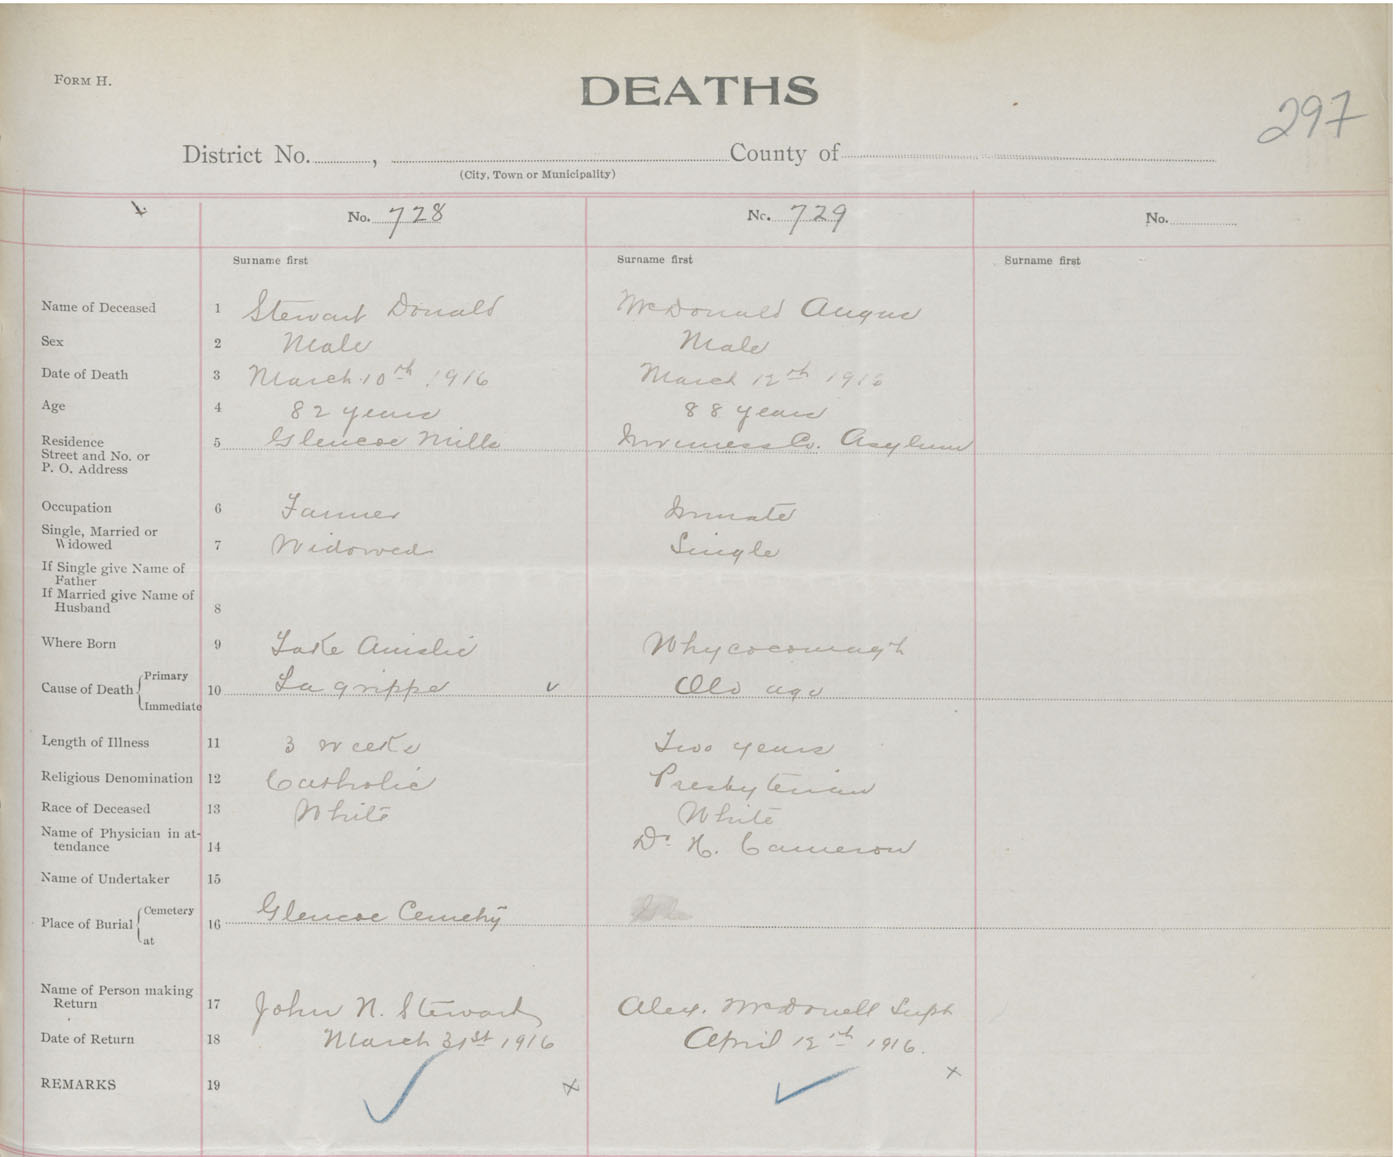 FORM H.
DEATHS
297
District No. , County of
(City, Town or Municipality)
No. 728 No. 729 No.
Surname first Surname first Surname first
Name of Deceased 1 Stewart Donald McDonald Angus
Sex 2 Male Male
Date of Death 3 March 10th 1916 March 12th 1916
Age 4 82 years 88 years
Residence 5 Glencoe Mills Inverness Co. Asylum
Street and No. or
P. O. Address
Occupation 6 Farmer Inmate
Single, Married or
Widowed 7 Widowed Single
If Single give Name of
Father
If Married give Name of
Husband 8
Where Born 9 Lake Ainslie Whycocomagh
Cause of Death Primary
10 La grippe v Old age
Immediate
Length of Illness 11 3 weeks Two years
Religious Denomination 12 Catholic Presbyterian
Race of Deceased 13 White White
Name of Physician in at-
tendance 14 Dr. H. Cameron
Name of Undertaker 15
Place of Burial Cemetery
16 Glencoe Cemetry
at
Name of Person making
Return 17 John N. Stewart Alex. McDonell Supt
Date of Return 18 March 31st 1916 April 12th 1916.
REMARKS 19 x x